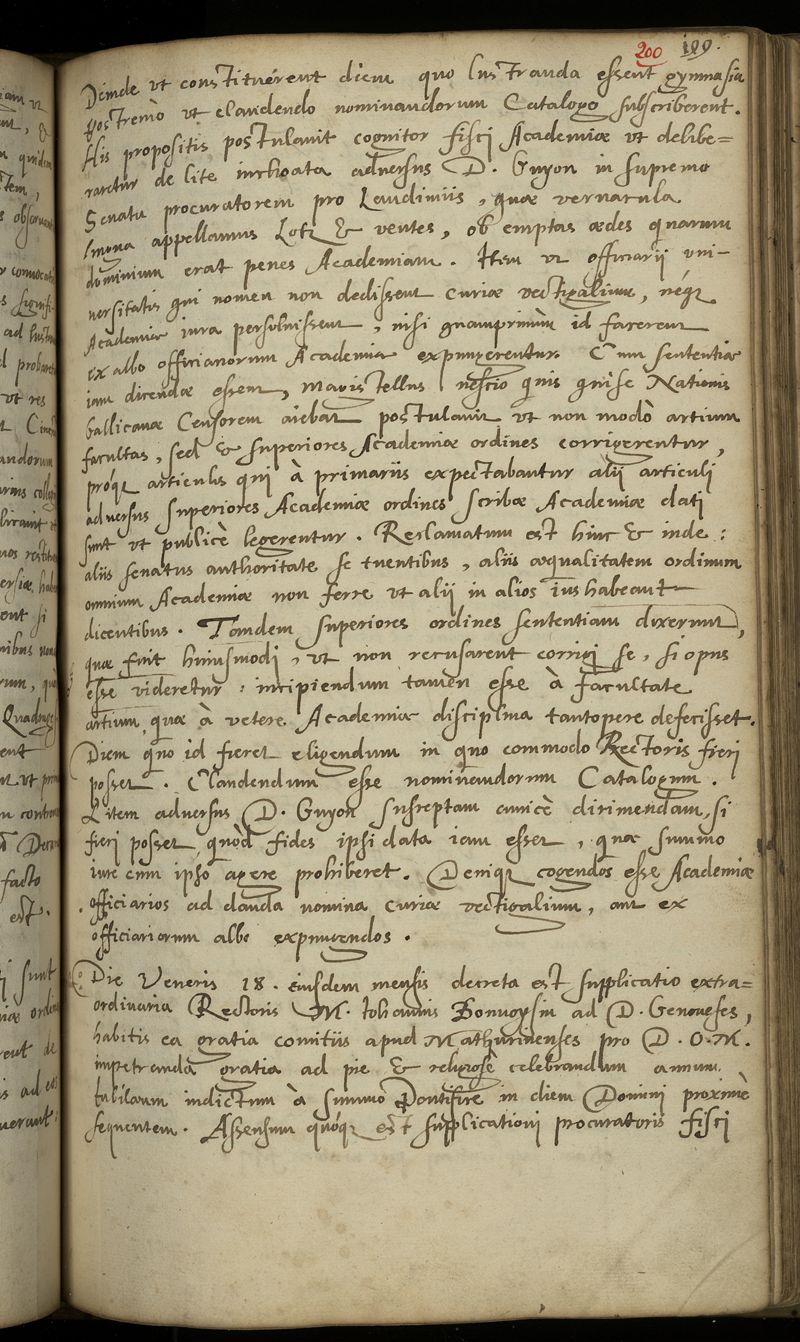 200 199.
Deinde vt constituerent diem quo lustranda essent gymnasia
Postremò vt claudendo nominandorum Catalogo subscriberent.
His propositis postulauit cognitor fisci Academiæ vt delibe=
raretur de lite inchoata aduersus D. Guyon in supremo
Senatu procuratorem pro Laudimiis, quæ vernacula
lingua appellamus Lotz & ventes, ob emptas ædes quarum
dominium erat penes Academiam. Item vt officiarij vni-
uersitatis qui nomen non dedissent curiæ vectigalium, neq
Academiæ iura persoluissent, nisi quamprimùm id facerent
ex albo officiariorum Academiæ expungerentur. Cum sententiæ
iam dicendæ essent, Mauistellus nescio quis qui se Nationis
Gallicanæ Censorem aiebat postulauit vt non modò artium
facultas, sed & superiores Academiæ ordines corrigerentur,
próq articulis qui à primariis expectabantur alij articuli
aduersus superiores Academiæ ordines scribæ Academiæ dati
sunt vt publicè legerentur. Reclamatum est hinc & inde:
aliis senatus authoritate se tuentibus, aliis æqualitatem ordinum
omnium Academiæ non ferre vt alij in alios ius habeant
dicentibus. Tandem superiores ordines sententiam dixerunt,
quæ fuit huiusmodi, vt non recusarent corrigi se, si opus
esse videretur: incipiendum tamen esse à facultate
artium quæ à vetere Academiæ disciplina tantopere defecisset.
Diem quo id fieret eligendum in quo commodo Rectoris fieri
posset. Claudendum esse nominandorum Catalogum.
Litem aduersus D. Guyon susceptam amicè dirimendam, si
fieri posset, quòd fides ipsi data iam esset, quæ summo
iure cum ipso agere prohiberet. Deniq cogendos esse Academiæ
officiarios ad danda nomina curiæ vectigalium, aut ex
officiariorum albo expungendos.
Die Veneris 18. eiusdem mensis decreta est supplicatio extra=
ordinaria Rectoris M. Iohannis Bonuoysin ad D. Genouefes,
habitis ea gratia comitiis apud Mathurinenses pro D. O. M.
impetranda gratia ad pie & religiose celebrandum annum
Iubilæum indictum à summo Pontifice in diem Domini proximè
sequentem. Assensum quóq est supplicationi procuratoris fisci